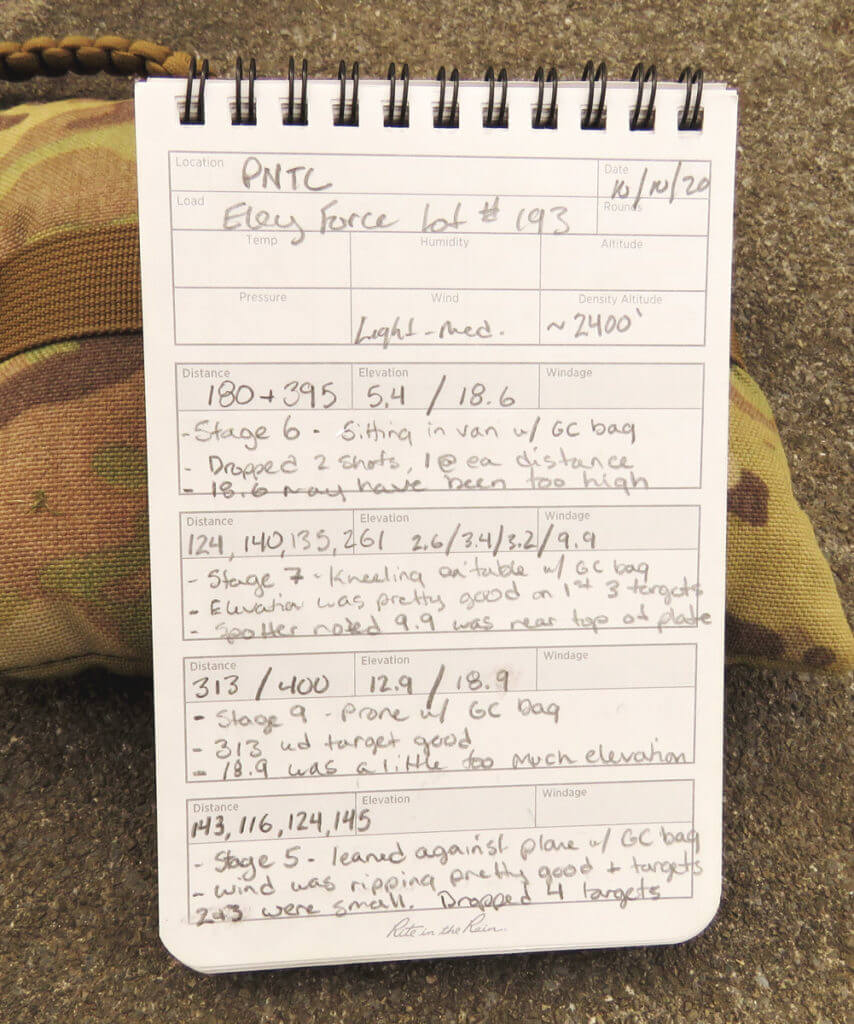 Location PNTC Date 10/10/20
Load Eley Force Lot # 193 Rounds
Temp Humidity Altitude
Pressure Wind Density Altitude
Light-med. ~2400'
Distance Elevation Windage
180+395 5.4 / 18.6
- Stage 6 - Sitting in van w/ GC bag
- Dropped 2 shots, 1 @ ea distance
- 18.6 may have been too high
Distance Elevation Windage
124, 140, 135, 261 2.6/3.4/3.2/9.9
- Stage 7 - Kneeling on table w/ GC bag
- Elevation was pretty good on 1st 3 targets
- Spotter noted 9.9 was near top of plate
Distance Elevation Windage
313 / 400 12.9 / 18.9
- Stage 9 - Prone w/ GC bag
- 313 yd target good
- 18.9 was a little too much elevation
Distance Elevation Windage
143, 116, 124, 145
- Stage 5 - leaned against plane w/ GC bag
- wind was ripping pretty good + targets
2+3 were small. Dropped 4 targets
Rite in the Rain